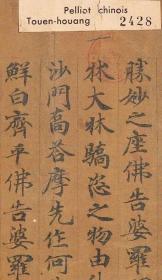 Pelliot chinois
Touen-houang 2428
勝妙之座佛告婆羅
牀大牀驕恣之物由
沙門喬荅摩先作何
鮮白齊平佛告婆羅